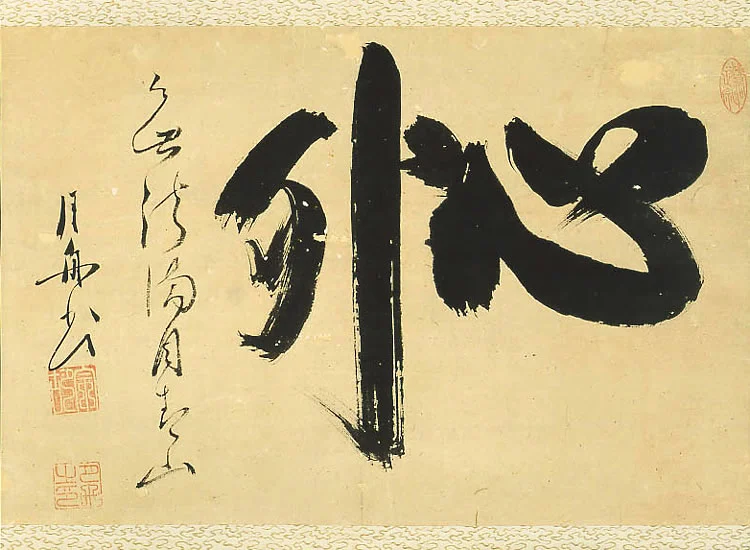 心外
無法満目青山
月舟書